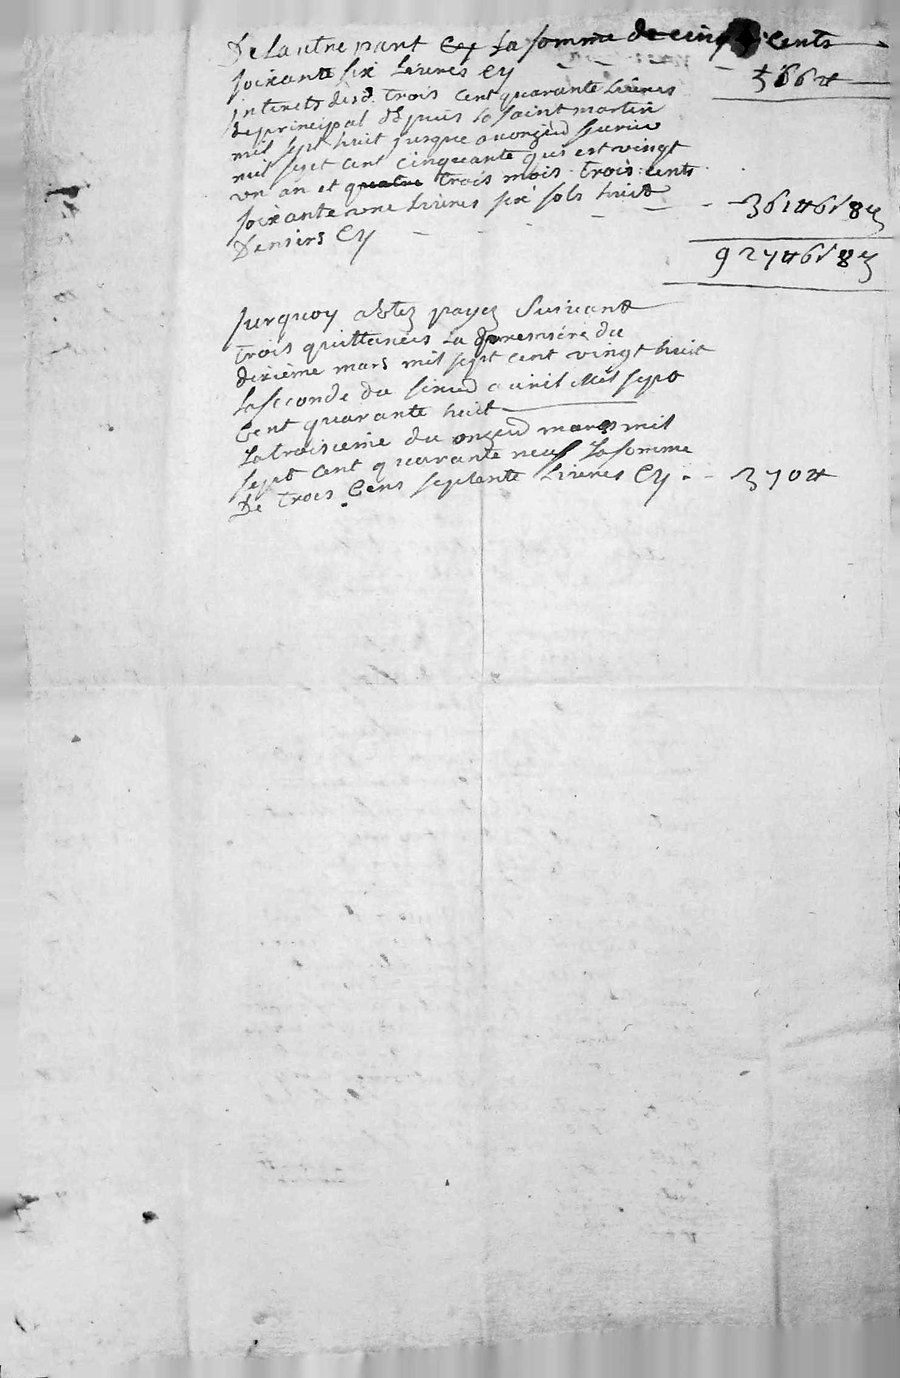 De Lautre part Cy La somme de cinq cents
soixante six Livres Cy 566 ₶
interets desd. trois cent quarante Livres
de principal depuis La saint martin
mil sept huit jusque a onzieu feurie
mil sept cent cinquante qui est vingt
un an et quatre trois mois trois cents
soixante une Livres six sols huit
Deniers Cy 361₶ 6s 8d
927₶ 6s 8d
surquoy a este payez suivant
trois quittances La premiere du
dixième mars mil sept cent vingt huit
La seconde du avril Mil sept
Cent quarante huit
La troisieme du onzeu mars mil
sept cent quarante neuf La somme
De trois Cens septente Livres Cy 370 ₶